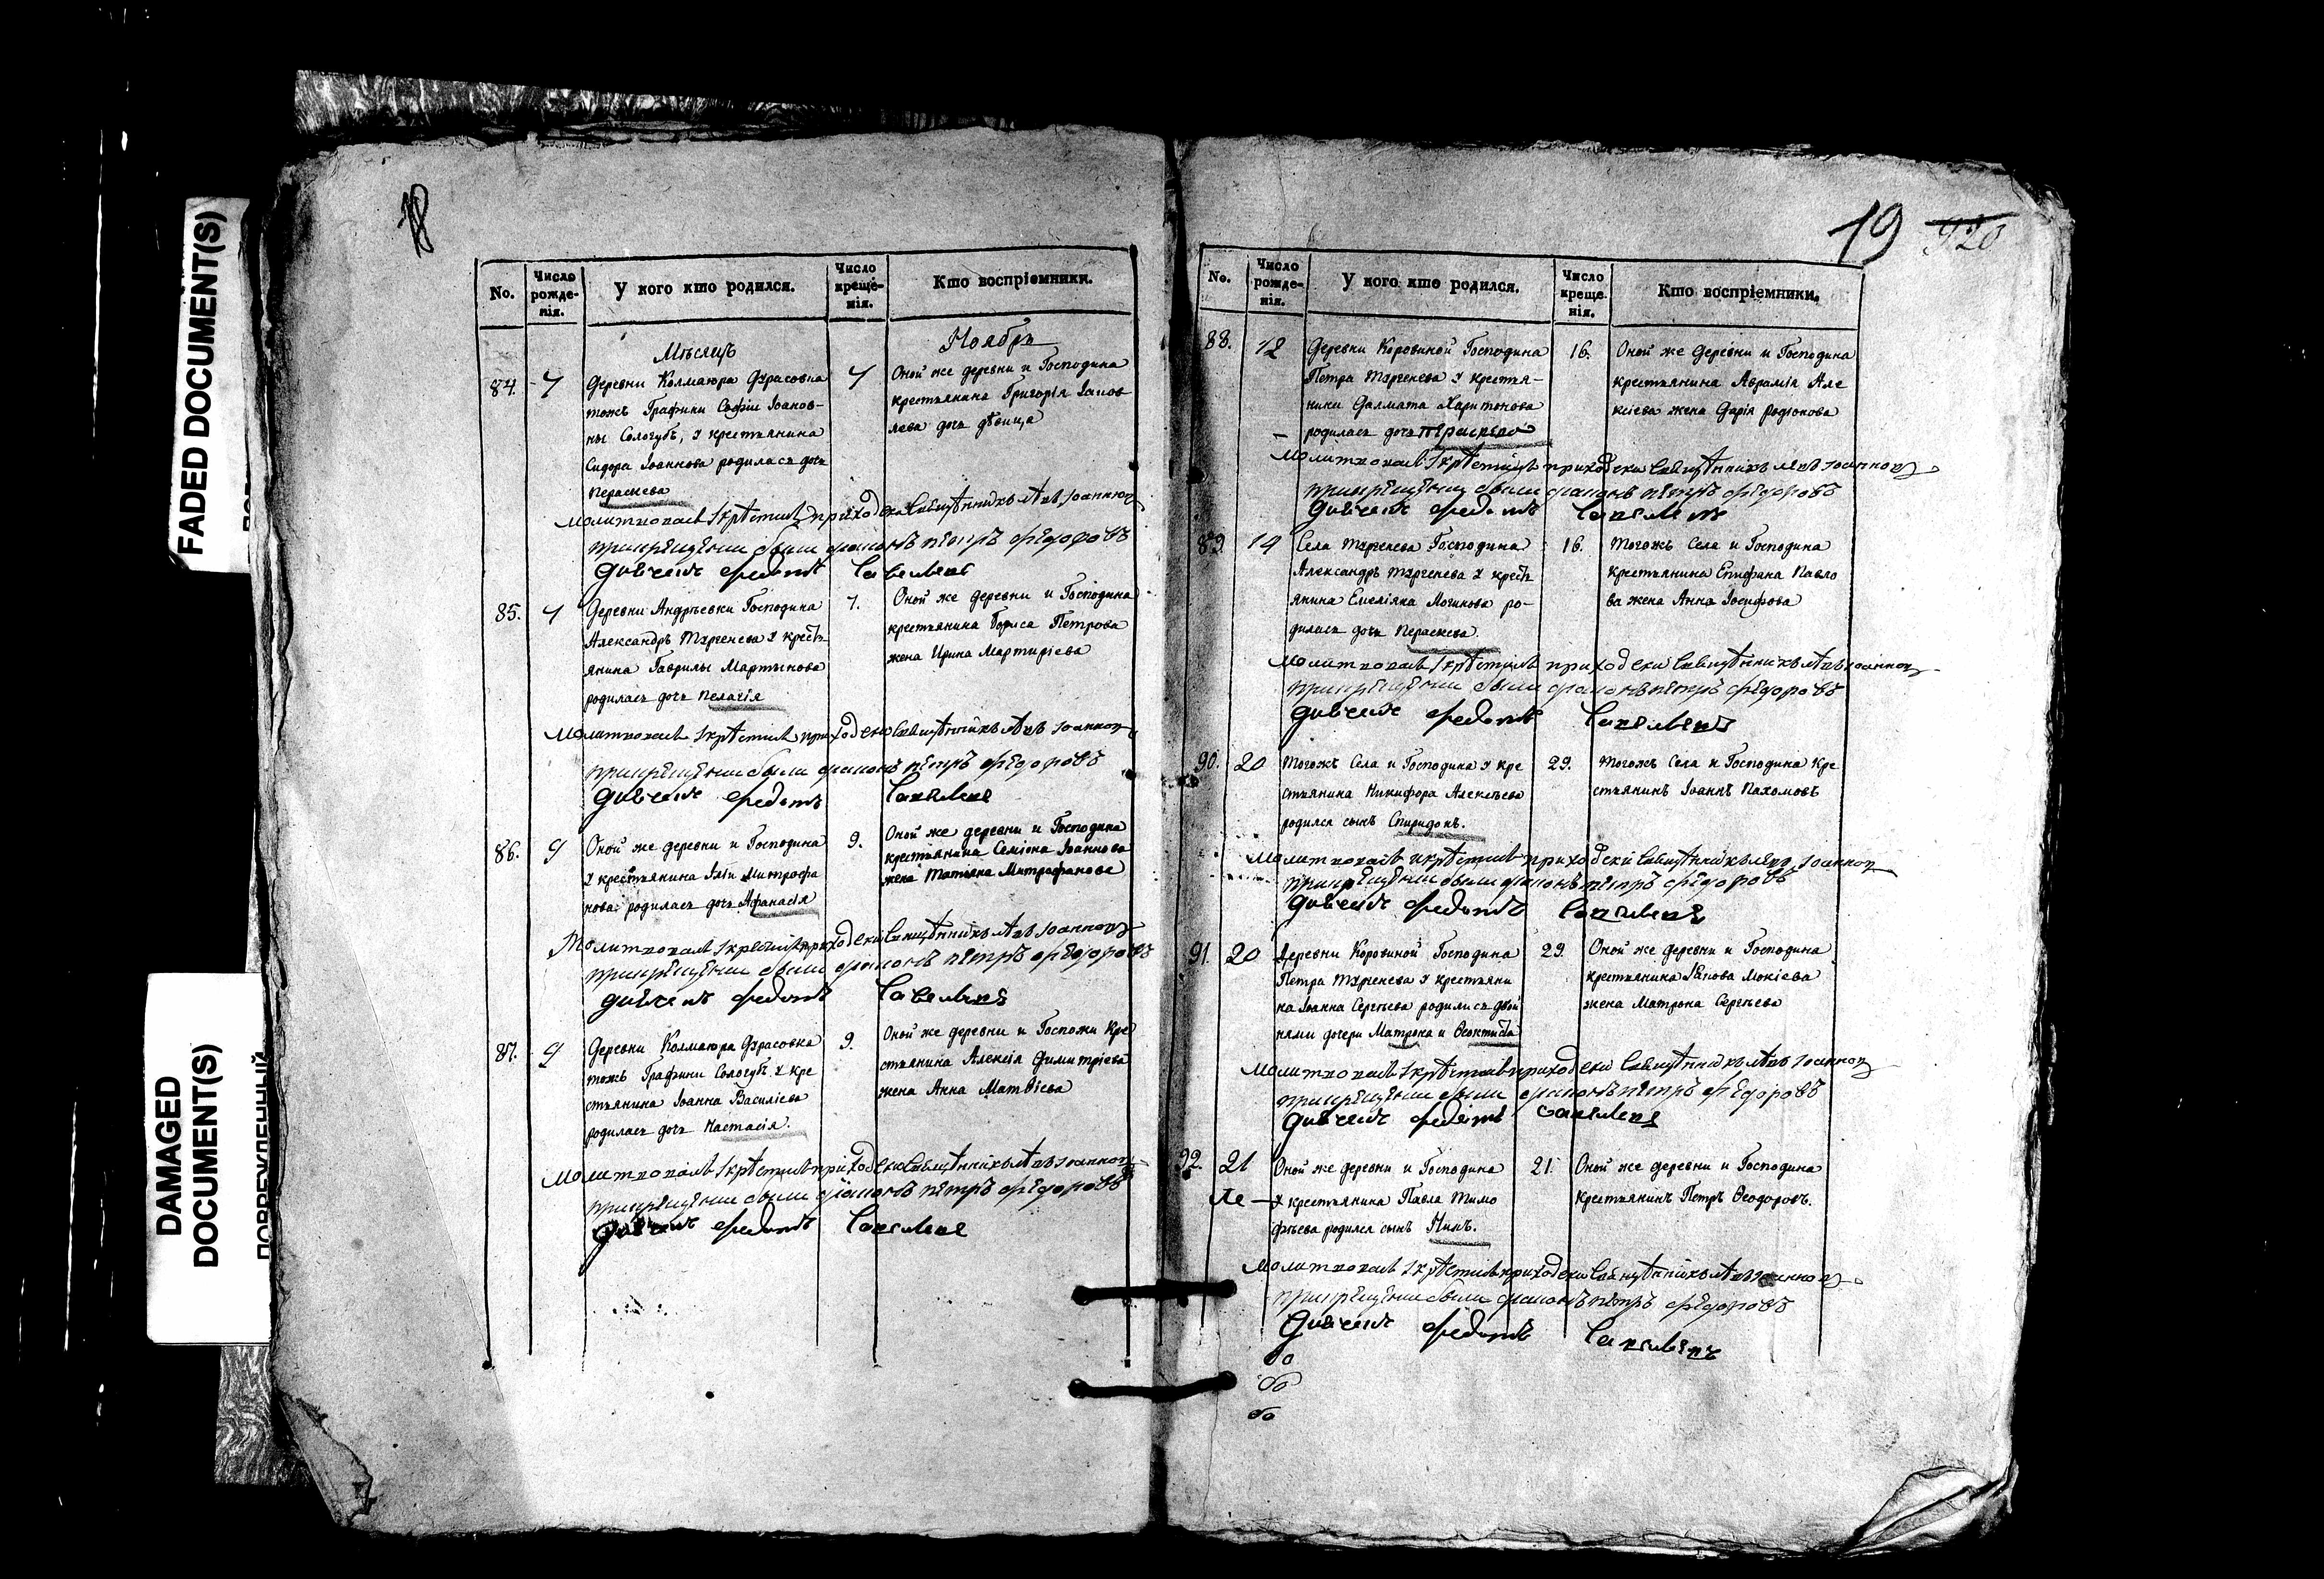 FADED DOCUMENT(S)
DAMAGED
DOCUMENT(S)
ПОВРЕЖДЕННЫЙ
18
No.
Число рожденія.
У кого кто родился.
Число крещенія.
Кто воспріемники.
Мѣсяцъ
Ноябрь
84.
7
Деревни Колмаюра Фурасовка
тожъ Графини Софіи Іоанов-
ны Сологубъ, у крестьянина
Сидора Іоаннова родилась дочь
Пераскева
7
Оной же деревни и Господина
крестьянина Григорія Іаков
лева дочь дѣвица
молитвовалъ и крѣстилъ приходски священникъ Левъ Іоанновъ
прикрещении были дияконъ пѣтръ фѣдоровъ
дьячекъ федотъ Савельевъ
85.
7
Деревни Андрѣевки Господина
Александръ Тургенева у кресть
янина Гаврилы Мартынова
родилась дочь Пелагія
7.
Оной же деревни и Господина
крестьянина Бориса Петрова
жена Ирина Мартиріева
молитвовалъ и крѣстилъ приходски священникъ Левъ Іоанновъ
прикрещении были дияконъ пѣтръ фѣдоровъ
дьячекъ федотъ Савельевъ
86.
9
Оной же деревни и Господина
у крестьянина Иліи Митрофа
нова родилась дочь Афанасія
9.
Оной же деревни и Господина
крестьянина Семіона Іоаннова
жена Татьяна Митрофанова
Молитвовалъ и крестилъ приходски священникъ Левъ Іоанновъ
прикрещении были дияконъ пѣтръ фѣдоровъ
дьячекъ федотъ Савельевъ
87.
9
Деревни Колмаюра Фурасовка
тожъ Графини Сологубъ у кре
стьянина Іоанна Василіева
родилась дочь Настасія.
9.
Оной же деревни и Госпожи кре
стьянина Алексія Димитріева
жена Анна Матвіева
молитвовалъ и крѣстилъ приходски священникъ Левъ Іоанновъ
прикрещении были дияконъ пѣтръ фѣдоровъ
дьячекъ федотъ Савельевъ
19
No.
Число рожденія.
У кого кто родился.
Число крещенія.
Кто воспріемники.
88.
12
Деревни Коровиной Господина
Петра Тургенева у крестья-
нина Далмата Харитонова
родилась дочь
16.
Оной же деревни и Господина
крестьянина Авраміа Але
ксіева жена Дарія Родіонова
молитвовалъ и крѣстилъ приходски священникъ Левъ Іоанновъ
прикрещении были дияконъ пѣтръ фѣдоровъ
дьячекъ федотъ Савельевъ
89.
14
Села Тургенева Господина
Александръ Тургенева у кресть
янина Емеліяна Логинова ро-
дилась дочь Пераскева.
16.
Тогожъ Села и Господина
крестьянина Епифана Павло
ва жена Анна Іосифова
молитвовалъ и крѣстилъ приходски священникъ Левъ Іоанновъ
прикрещении были дияконъ пѣтръ фѣдоровъ
дьячекъ федотъ Савельевъ
90.
20
Тогожъ Села и Господина у кре
стьянина Никифора Алексѣева
родился сынъ Спиридонъ.
29.
Тогожъ Села и Господина кре
стьянинъ Іоаннъ Пахомовъ
Молитвовалъ и крѣстилъ приходски священникъ Левъ Іоанновъ
прикрещении были дияконъ пѣтръ фѣдоровъ
дьячекъ федотъ Савельевъ
91.
20
Деревни Коровиной Господина
Петра Тургенева у крестьяни
на Іоанна Сергѣева родились двой
нями дочери Матрона и Ѳеоктиста
29.
Оной же деревни и Господина
крестьянина Іакова Мокіева
жена Матрона Сергѣева
молитвовалъ и крѣстилъ приходски священникъ Левъ Іоанновъ
прикрещении были дияконъ пѣтръ фѣдоровъ
дьячекъ федотъ Савельевъ
92.
21
Оной же деревни и Господина
у крестьянина Павла Тимо
фѣева родился сынъ
21.
Оной же деревни и Господина
крестьянинъ Петръ Ѳеодоровъ.
молитвовалъ и крѣстилъ приходски священникъ Левъ Іоанновъ
прикрещении были дияконъ пѣтръ фѣдоровъ
дьячекъ федотъ Савельевъ